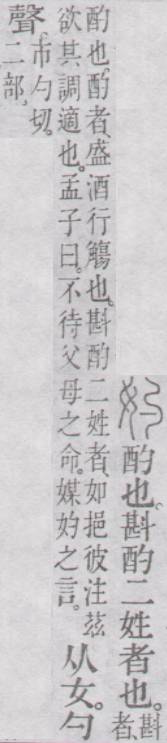 妁 酌也。斟酌二姓者也。斟
者、
酌也酌者、盛酒行觴也。斟酌二姓者、如挹彼注茲
欲其調適也。孟子曰。不待父母之命。媒妁之言。
从女。勺
聲。
市勺切。
二部。